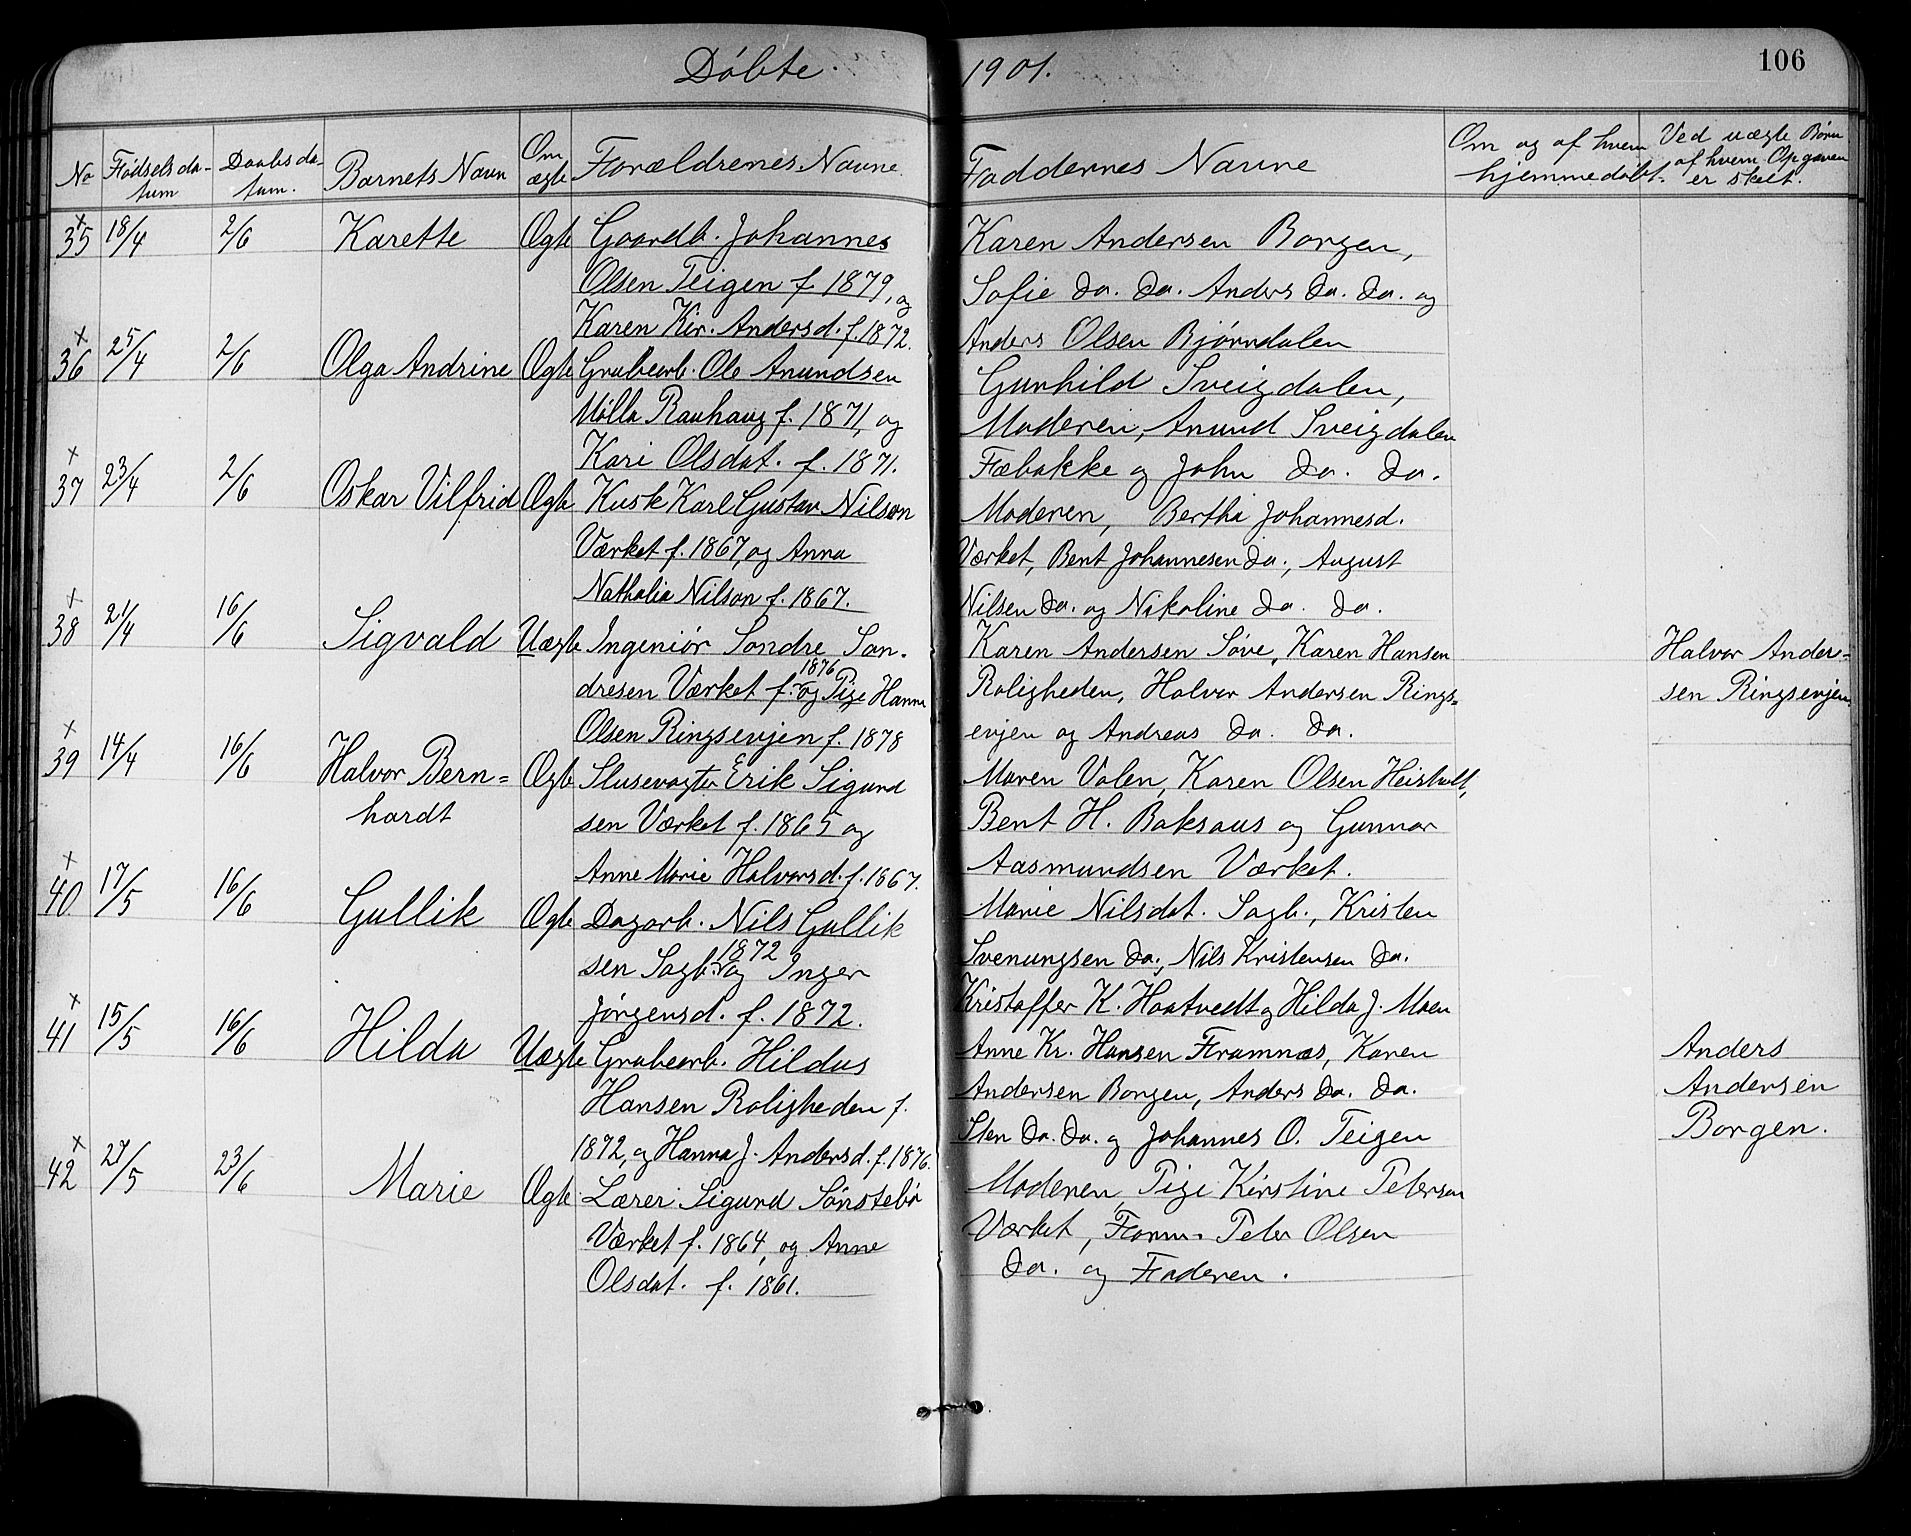 Döbte.
1901.
106
No
Födselsda-
tum
Daabsda-
tum.
Barnets Navn
Om
ægte
Forældrenes Navne.
Faddernes Navne
Om og af hvem
hjemmedöbt.
Ved uægte Börn
af hvem Opgaven
er skeet.
x
35 18/4 2/6 Karette Ægte Gaardb. Johannes
Olsen Teigen f. 1879, og
Karen Kir. Andersd. f. 1872.
Karen Andersen Borgen,
Sofie do. do. Anders do. do. og
Anders Olsen Bjørndalen
x
36 25/4 2/6 Olga Andrine Ægte Grubearb. Ole Anundsen
Mølla Rauhaug f. 1871, og
Kari Olsdat. f. 1871.
Gunhild Sveigdalen,
Moderen, Anund Sveigdalen
Fæbakke og John do. do.
x
37 23/4 2/6 Oskar Vilfrid Ægte Kusk Karl Gustav Nilson
Værket f. 1867, og Anna
Nathalia Nilson f. 1867.
Moderen, Bertha Johannesd.
Værket, Bent Johannesen do., August
Nilsen do. og Nikoline do. do.
x
38 21/4 16/6 Sigvald Uægte Ingeniör Sondre Son-
dresen Værket f. 1876 og Pige Hanna
Olsen Ringsevjen f. 1878
Karen Andersen Søve, Karen Hansen
Roligheden, Halvor Andersen Rings=
evjen og Andreas do. do.
Halvor Ander=
sen Ringsevjen.
x
39 14/4 16/6 Halvor Bern=
hardt
Ægte Slusevogter Erik Sigurd
sen Værket f. 1865 og
Anne Marie Halvorsd. f. 1867.
Maren Valen, Karen Olsen Heisholt,
Bent H. Baksaas og Gunnar
Aasmundsen Værket.
x
40 17/5 16/6 Gullik Ægte Dagarb. Nils Gullik
sen Sagb. 1872 og Inger
Jørgensd. f. 1872.
Marie Nilsdat. Sagb., Kristen
Svenungsen do., Nils Kristensen do.
Kristoffer K. Haatvedt og Hilda J. Moen
x
41 15/5 16/6 Hilda Uægte Grubearb. Hildus
Hansen Roligheden f.
1872, og Hanna J. Andersd. f. 1876.
Anne Kr. Hansen Framnæs, Karen
Andersen Borgen, Anders do. do.
Sten do. do. og Johannes O. Teigen
Anders
Andersen
Borgen.
x
42 27/5 23/6 Marie Ægte Lærer Sigurd Sönstebö
Værket f. 1864, og Anne
Olsdat. f. 1861.
Moderen, Pige Kirstine Petersen
Værket, Form. Peter Olsen
do. og Faderen.